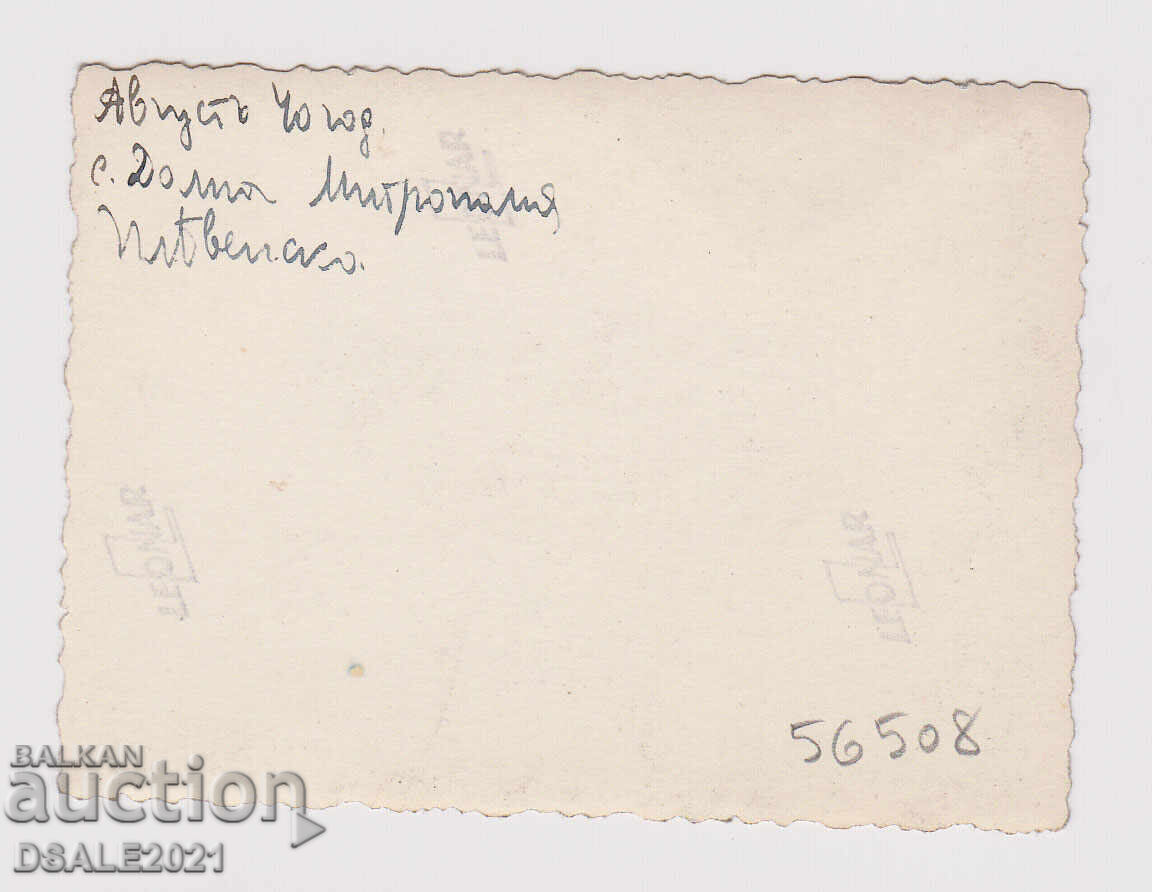 Августъ 40 год.
с. Долна Митрополия
Плѣвенско.
LEONAR
LEONAR
LEONAR
56508
BALKAN
auction
DSALE2021